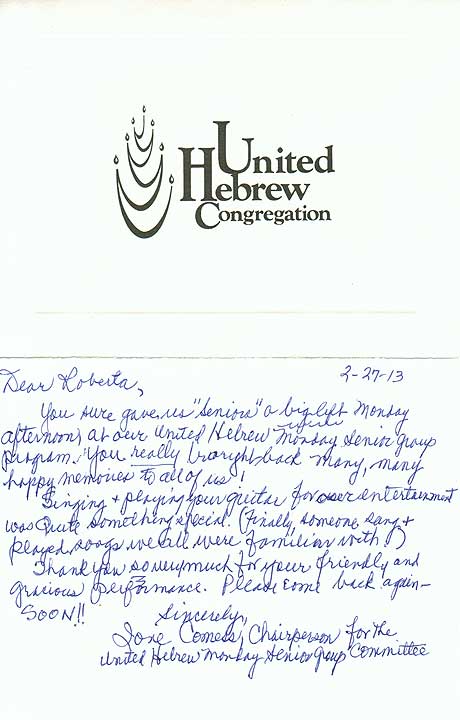 United
Hebrew
Congregation
2-27-13
Dear Roberta,
You sure gave us "Seniors" a big lift Monday
afternoon at our United Hebrew Monday Senior group
program. You really brought back many, many
happy memories to all of us!
Singing + playing your guitar for our entertainment
was quite something special. (Finally, someone sang +
played songs we all were familiar with!)
Thank you so very much for your friendly and
gracious performance. Please come back again-
SOON!!
Sincerely,
Chairperson for the
United Hebrew Monday Senior Group Committee